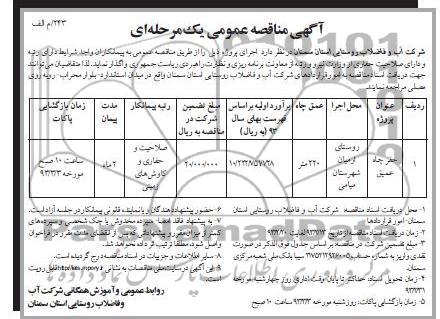 ۲۴۳/م الف
آگهی مناقصه عمومی یک‌مرحله‌ای
شرکت آب و فاضلاب روستایی استان سمنان در نظر دارد اجرای پروژه ذیل را از طریق مناقصه عمومی به پیمانکاران واجد شرایط دارای رتبه
و دارای صلاحیت حفاری از وزارت نیرو و رتبه از معاونت برنامه ریزی و نظارت راهبردی ریاست جمهوری واگذار نماید. لذا متقاضیان می‌توانند
جهت دریافت اسناد مناقصه به امور قراردادهای شرکت آب و فاضلاب روستایی استان سمنان واقع در میدان استاندارد- بلوار محراب- روبه روی
مصلی مراجعه نمایند.
ردیف | عنوان پروژه | محل اجرا | عمق چاه | برآورد اولیه براساس فهرست بهای سال ۹۳ (به ریال) | مبلغ تضمین شرکت در مناقصه به ریال | رتبه پیمانکار | مدت پیمان | زمان بازگشایی پاکات
۱ | حفر چاه عمیق | روستای شهرستان میامی | ۲۲۰ متر | ۲۰/۰۰۰/۰۰۰ | صلاحیت و حفاری و کاوش‌های زمینی | ۲ ماه | ساعت ۱۰ صبح مورخه
۱- محل دریافت اسناد مناقصه: شرکت آب و فاضلاب روستایی استان
سمنان- امور قراردادها
۲- زمان دریافت اسناد مناقصه از تاریخ
۳- مبلغ تضمین شرکت در مناقصه بر اساس جدول فوق الذکر در صورت
نقدی واریز به شماره حساب سیبا بانک ملی شعبه مرکزی
سمنان.
۴- زمان تحویل اسناد: حداکثر تا پایان وقت اداری روز چهارشنبه مورخه
۵- زمان بازگشایی پاکات: روز شنبه مورخه ساعت ۱۰ صبح
۶- حضور پیشنهاد دهندگان و یا نماینده قانونی پیمانکار در جلسه آزاد است.
۷- به پیشنهاد فاقد امضاء، سپرده مخدوش یا چک شخصی و سپرده‌های
کمتر از میزان مقرر و پیشنهاداتی که پس از انقضای مدت مقرر در فراخوان
وصول شود، مطلقاً ترتیب اثر داده نخواهد شد.
۸- سایر اطلاعات و جزییات در اسناد مناقصه درج گردیده است.
۹- این آگهی در سایت ملی مناقصات به نشانی قابل رویت
است.
روابط عمومی و آموزش همگانی شرکت آب
وفاضلاب روستایی استان سمنان